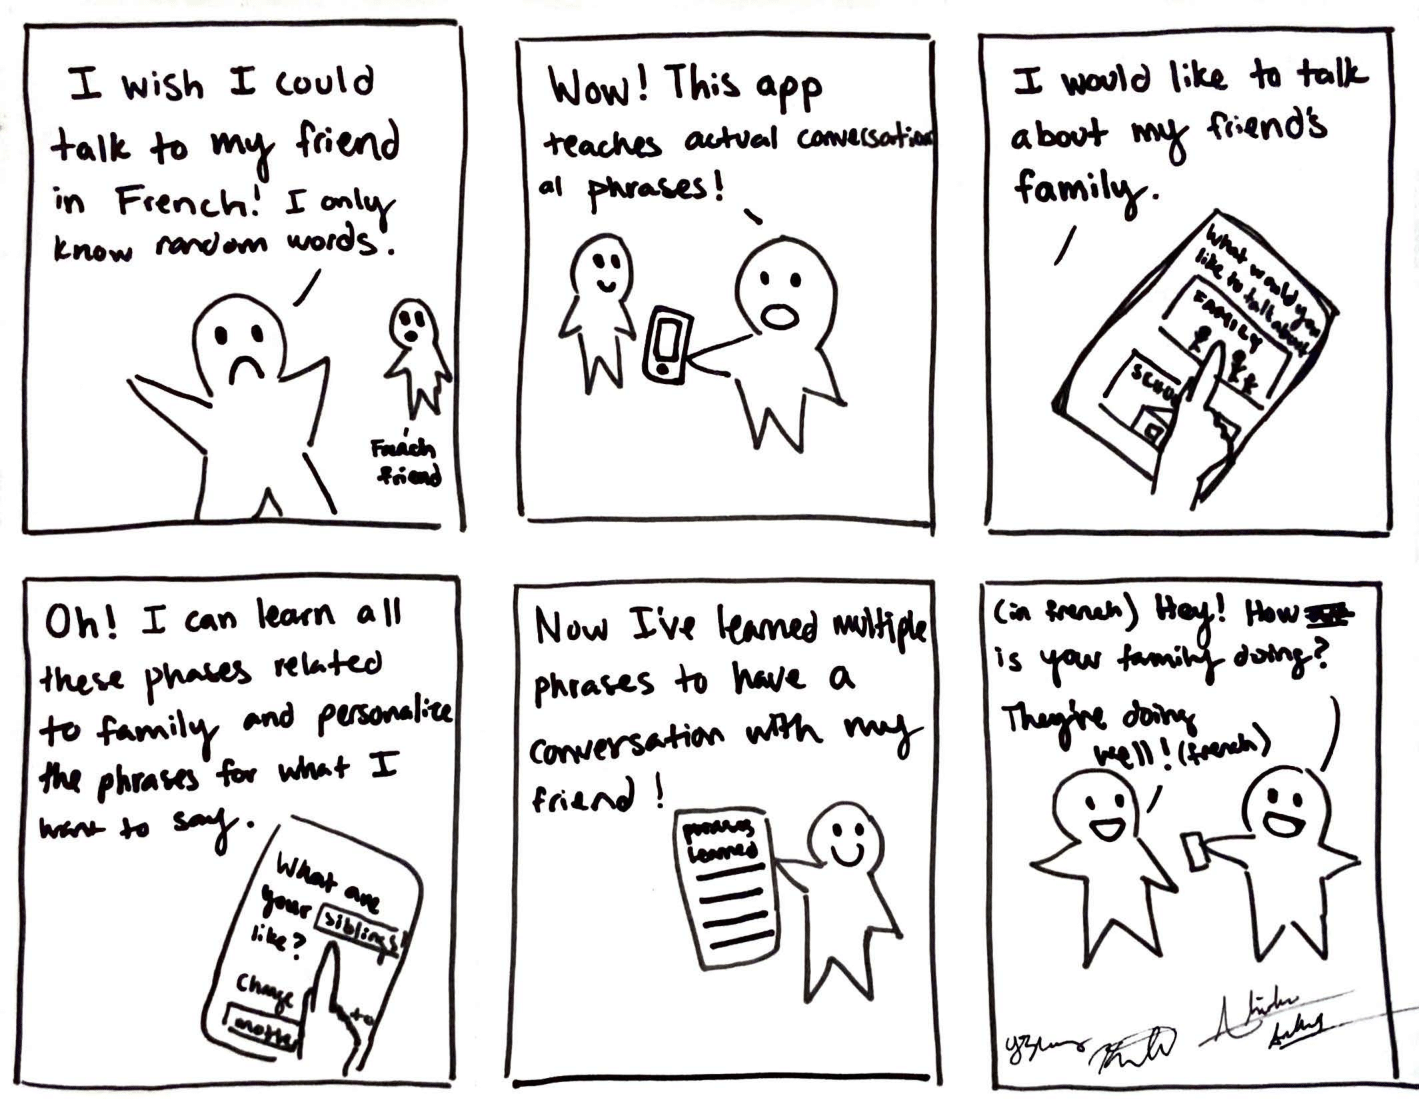 I wish I could
talk to my friend
in French! I only
know random words.
French
friend
Wow! This app
teaches actual conversation
al phrases!
I would like to talk
about my friend's
family.
What would you
like to talk about
FAMILY
SCHOO
Oh! I can learn all
these phases related
to family and personalize
the phrases for what I
want to say.
What are
your siblings
like?
Change
to
mother
Now I've learned multiple
phrases to have a
conversation with my
friend!
phrases
learned
(in french) Hey! How
is your family doing?
They're doing
well! (french)